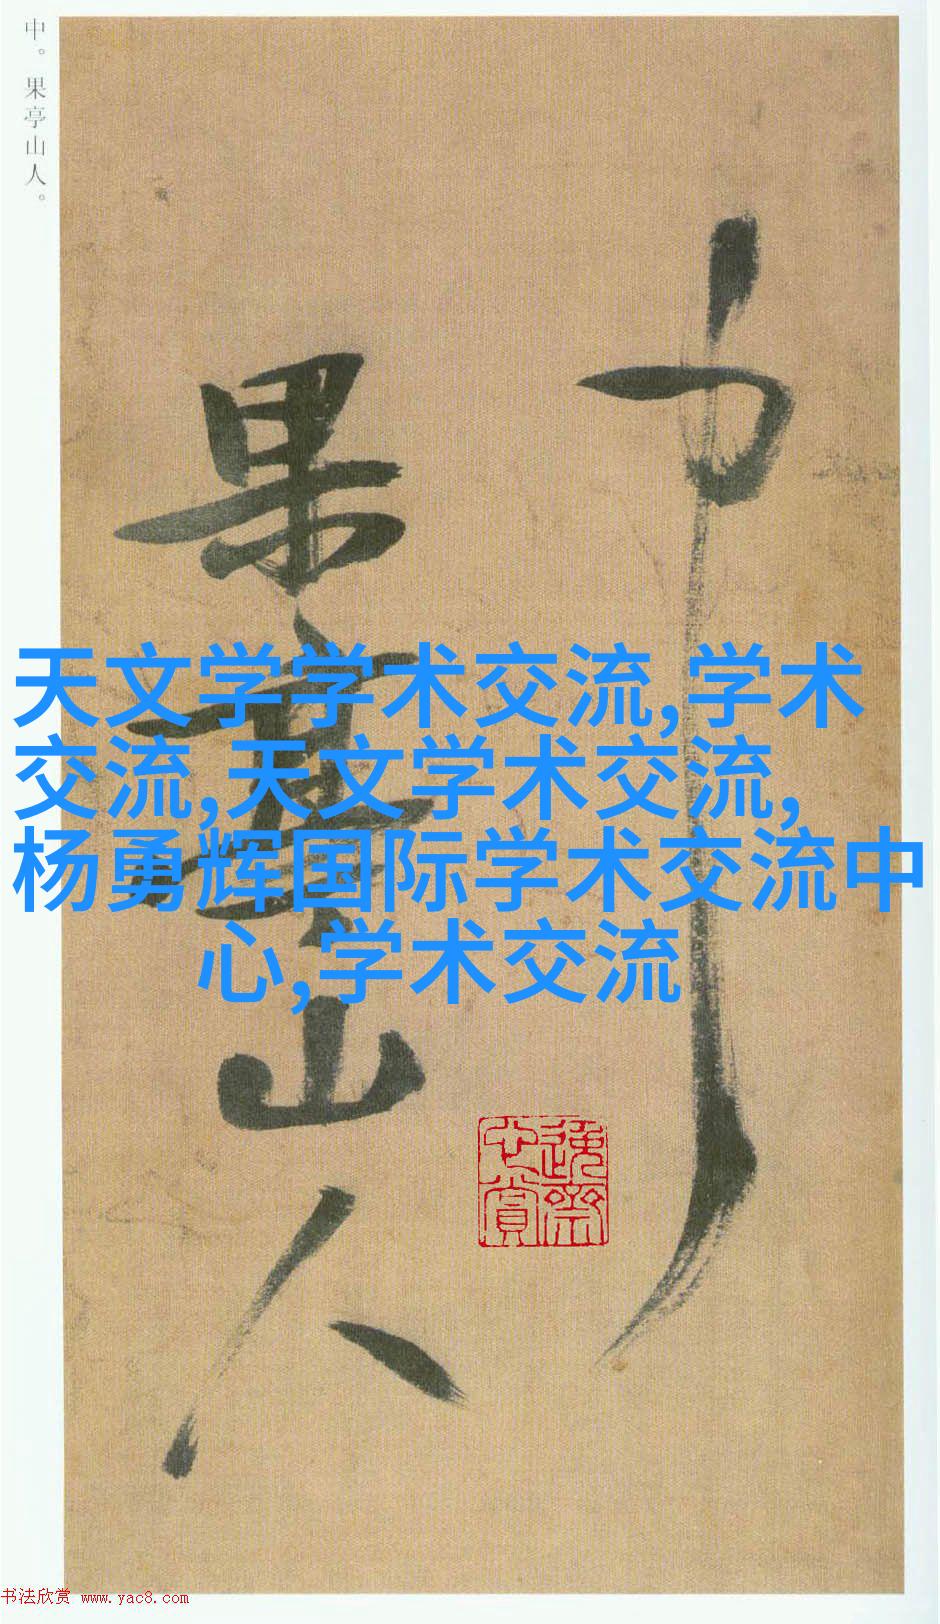 中。果亭山人。
中
果亭山人
天文学学术交流,学术
交流,天文学术交流,
杨勇辉国际学术交流中
心,学术交流
书法欣赏 www.yac8.com